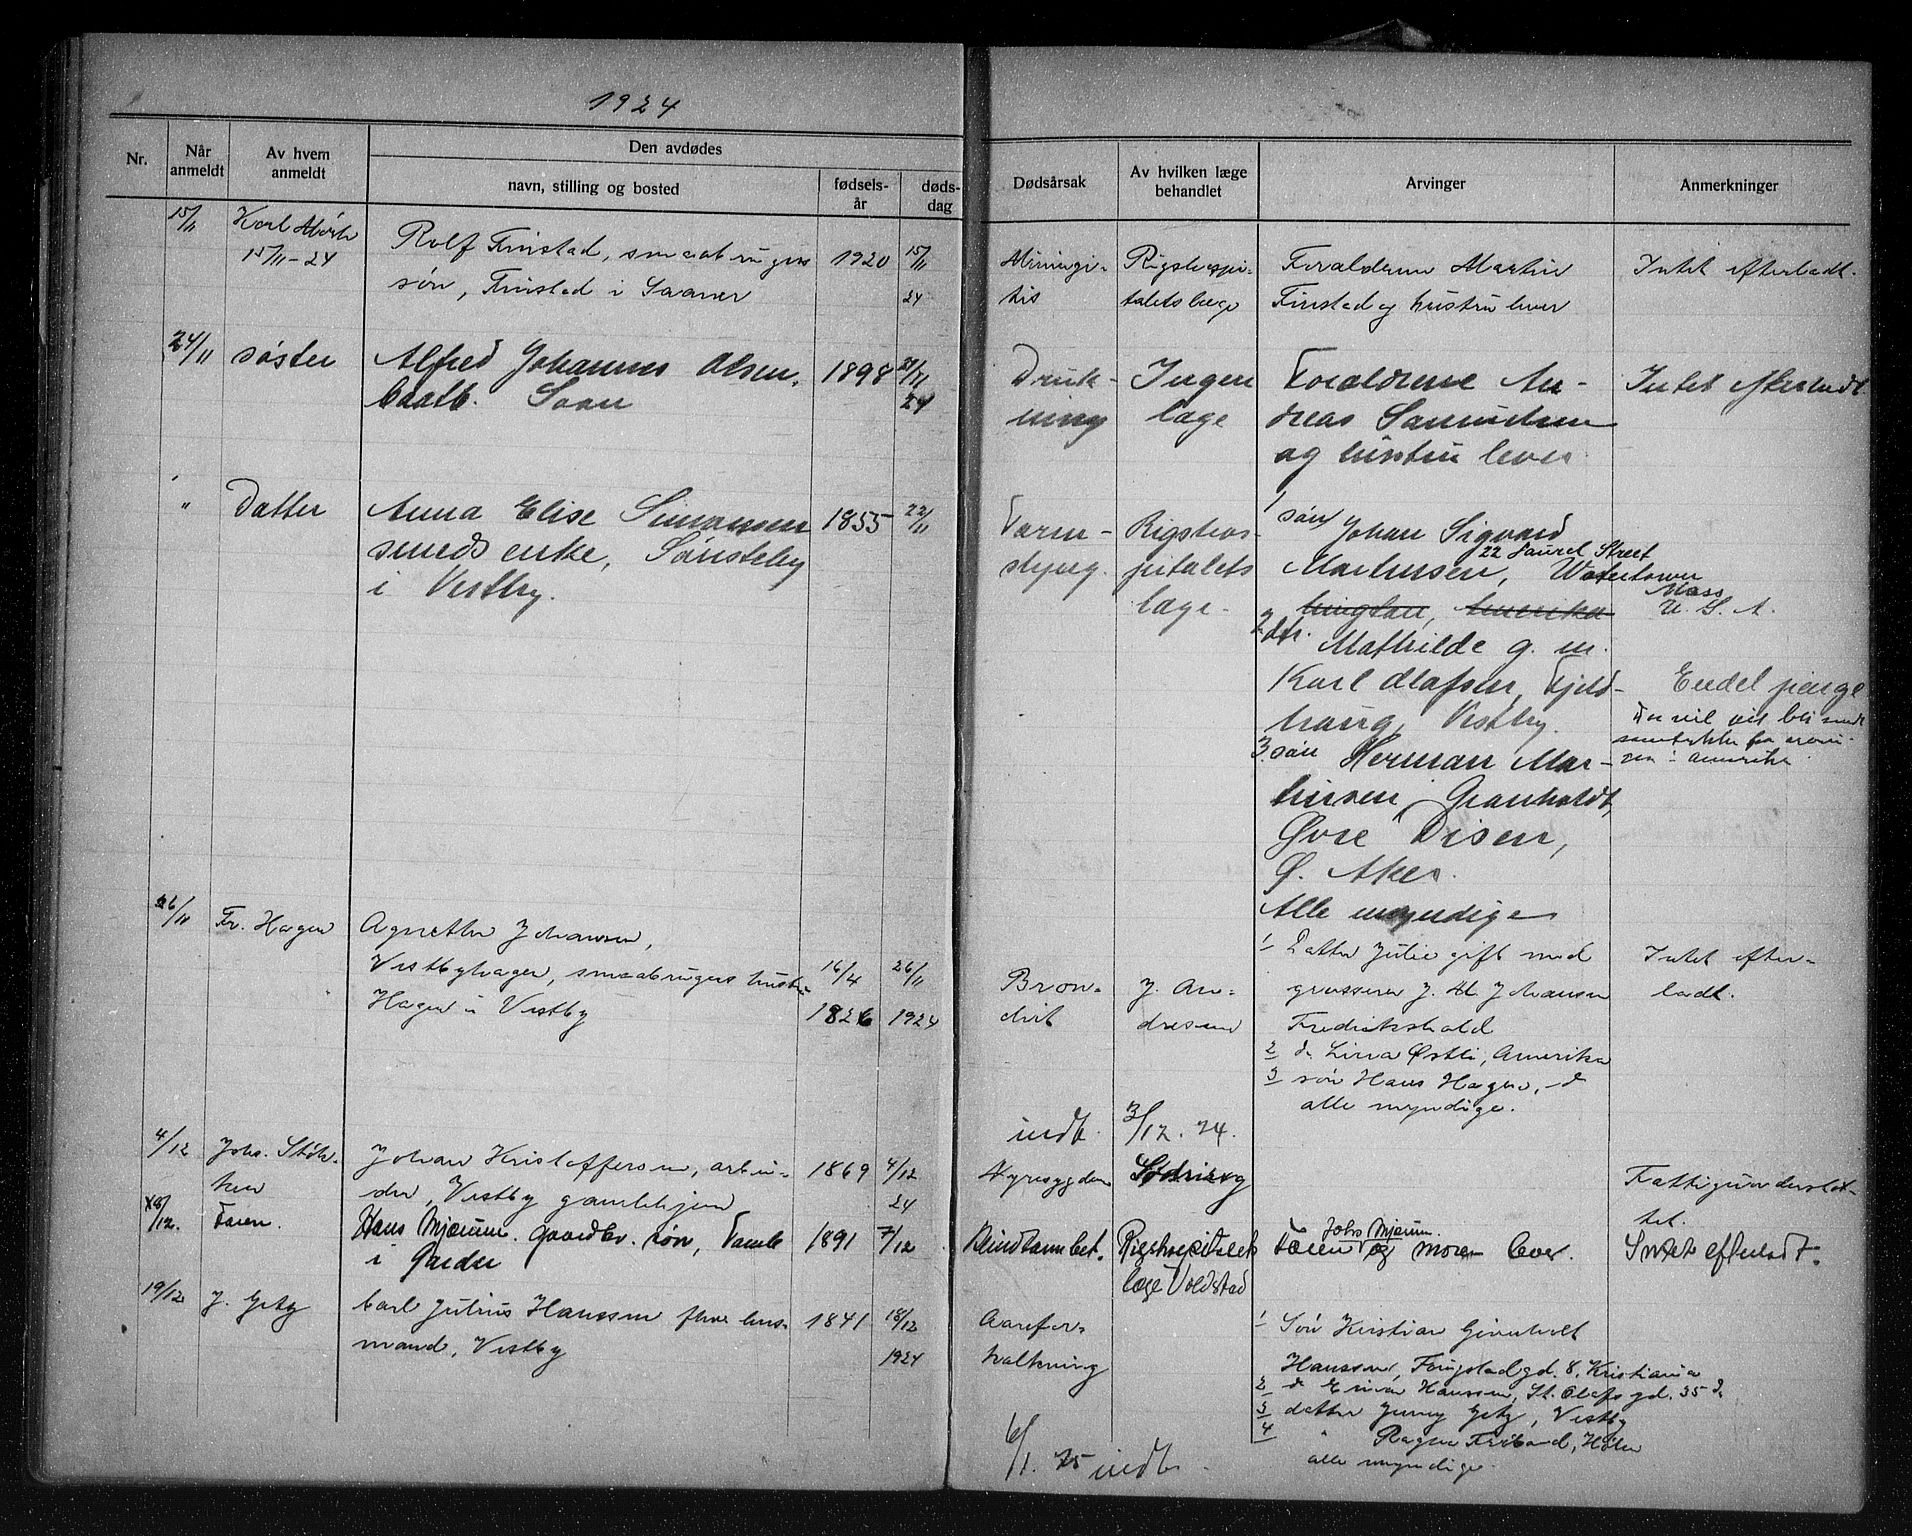 1924
Nr.
Når anmeldt
Av hvem anmeldt
Den avdødes
navn, stilling og bosted
fødsels-år
døds-dag
Dødsårsak
Av hvilken læge behandlet
Arvinger
Anmerkninger
15/11
Karl Mørk
15/11-24
Rolf Finstad, smaabrugers
søn, Finstad i Saaner
1920
15/11
24
Miningi-
tis
Rigshospi-
talets læge
Forældrene Martin
Finstad og hustru lever
Intet efterladt.
24/11
søster
Alfred Johannes Olsen,
baatb. Soon
1898
21/11
24
Druk-
ning
Ingen
læge
Forældrene An-
dreas Samuelsen
og hustru lever
Intet efterladt.
"
Datter
Anna Elise Simonsen
smeds enke, Sønsteby
i Vestby.
1855
22/11
Tarm-
slyng.
Rigshos-
pitalets
læge.
1 søn Johan Sigvard
22 Laurel Street
Martinsen, Watertown
Mass
U. S. A.
Amerika
2 dtr. Mathilde g. m.
Karl Olafsen, Fjeld-
haug, Vestby.
3. søn Herman Mar-
tinsen, Granholdt,
Øvre Disen,
Ø. Aker.
Alle myndige
Endel penge
Der vil bli
samtykke fra arvin-
gen i Amerika
26/11
Fr. Hagen
Agnethe Johansen,
Vestbyhagen, smaabrugers hustru
Hagen i Vestby
16/4
1826
26/11
1924
Bron-
chit
J. An-
dresen
1 Datter Julie gift med
grosserer J. M. Johansen
Fredrikshald
2 d. Lina Østli, Amerika
3 søn Hans Hagen, -d
alle myndige.
Intet efter-
ladt.
indb. 3/12. 24.
4/12
Johs. Støk-
ken
Johan Kristoffersen, arbei-
der, Vestby gamlehjem
1869
4/12
24
Nyresygdom
Sødring
Fattigunderstøt-
tet.
10/12.
Faren.
Hans Mjærum. gaardbr. søn,
i Garder
1891
7/12
Blindtarmbet.
Rigshospitalets
læge Voldstad
Johs Mjærum.
Faren og moren lever.
Intet efterladt.
19/12
J. Getz
Carl Julius Hanssen fhv. hus-
mand, Vestby
1841
18/12
1924
Aarefor-
kalkning
1 Søn Kristian Gravholt
Hanssen, Fougstadgd. 8, Kristiania
2 d. Einar Hanssen, St. Olafs gd. 35 d.
3 datter Jenny Getz, Vestby
4 " Ragna Fribord, Hølen
alle myndige.
6/1. 25 indb.